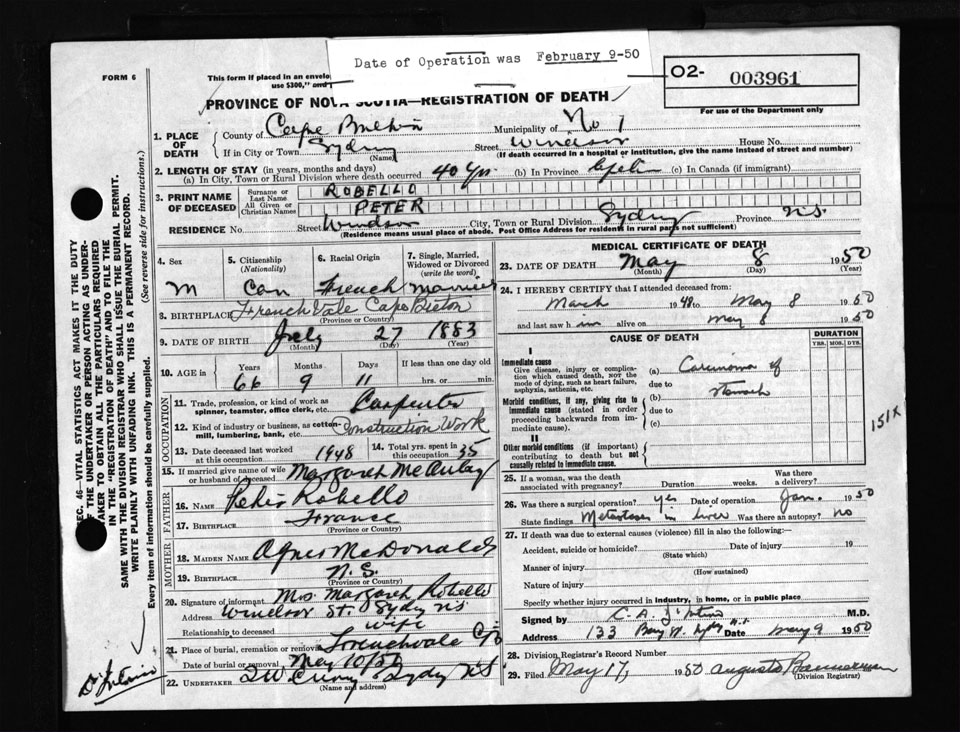 Date of Operation was February 9-50
FORM 6
This form if placed in an envelo
use $300," and
02- 003961
PROVINCE OF NOVA SCOTIA—REGISTRATION OF DEATH
For use of the Department only
1. PLACE OF DEATH
County of Cape Breton Municipality of No 1
If in City or Town Sydney (Name) Street Windsor House No.
(If death occurred in a hospital or institution, give the name instead of street and number)
2. LENGTH OF STAY (in years, months and days)
(a) In City, Town or Rural Division where death occurred 40 yrs. (b) In Province Life (c) In Canada (if immigrant)
3. PRINT NAME OF DECEASED
Surname or Last Name ROBELLO
All Given or Christian Names PETER
RESIDENCE No. Street Windsor City, Town or Rural Division Sydney Province N.S.
(Residence means usual place of abode. Post Office Address for residents in rural parts not sufficient)
4. Sex M
5. Citizenship (Nationality) Can
6. Racial Origin French
7. Single, Married, Widowed or Divorced (write the word) Married
8. BIRTHPLACE French Vale Cape Breton
(Province or Country)
9. DATE OF BIRTH July 27 1883
(Month) (Day) (Year)
10. AGE in Years 66 Months 9 Days 11 If less than one day old hrs. or min.
OCCUPATION
11. Trade, profession, or kind of work as spinner, teamster, office clerk, etc. Carpenter
12. Kind of industry or business, as cotton-mill, lumbering, bank, etc. Construction Work
13. Date deceased last worked at this occupation 1948
14. Total yrs. spent in this occupation 35
15. If married give name of wife or husband of deceased Margaret McAulay
FATHER
16. Name Peter Robello
17. Birthplace France
(Province or Country)
MOTHER
18. MAIDEN NAME Agnes McDonald
19. BIRTHPLACE N.S.
(Province or Country)
20. Signature of informant Mrs. Margaret Robello
Address Windsor St. Sydney N.S
Relationship to deceased Wife
21. Place of burial, cremation or removal Frenchvale C/B
Date of burial or removal May 10/50
22. UNDERTAKER Sydney N.S
(Name and address)
MEDICAL CERTIFICATE OF DEATH
23. DATE OF DEATH May 8 1950
(Month) (Day) (Year)
24. I HEREBY CERTIFY that I attended deceased from:
March 1948 to May 8 1950
and last saw him alive on May 8 1950
CAUSE OF DEATH
DURATION
YRS. MOS. DYS.
I
Immediate cause
Give disease, injury or complication which caused death, not the mode of dying, such as heart failure, asphyxia, asthenia, etc.
(a) Carcinoma of
due to
(b) stomach
Morbid conditions, if any, giving rise to immediate cause (stated in order proceeding backwards from immediate cause).
due to
(c)
II
Other morbid conditions (if important) contributing to death but not causally related to immediate cause.
151X
25. If a woman, was the death associated with pregnancy? Duration weeks. Was there a delivery?
26. Was there a surgical operation? yes Date of operation Jan. 1950
State findings Metastases in liver Was there an autopsy? no
27. If death was due to external causes (violence) fill in also the following:—
Accident, suicide or homicide? Date of injury 19
(State which)
Manner of injury
(How sustained)
Nature of injury
Specify whether injury occurred in industry, in home, or in public place
Signed by M.D.
Address 133 Sydney N.S. Date May 9 1950
28. Division Registrar's Record Number
29. Filed May 17, 1950 Augusta Bannerman
(Division Registrar)
SEC. 46—VITAL STATISTICS ACT MAKES IT THE DUTY
OF THE UNDERTAKER OR PERSON ACTING AS UNDER-
TAKER TO OBTAIN ALL THE PARTICULARS REQUIRED
IN THE "REGISTRATION OF DEATH" AND TO FILE THE
SAME WITH THE DIVISION REGISTRAR WHO SHALL ISSUE THE BURIAL PERMIT.
WRITE PLAINLY WITH UNFADING INK. THIS IS A PERMANENT RECORD.
Every item of information should be carefully supplied. (See reverse side for instructions.)